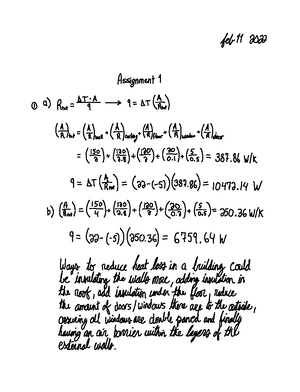 feb 11 2022
Assignment 1
① a) R_tot = ΔT·A / q → q = ΔT (A/R_tot)
(A/R)tot = (A/R)wall + (A/R)ceiling + (A/R)floor + (A/R)window + (A/R)door
= (150/2) + (120/2.8) + (120/2) + (20/0.1) + (5/0.5) = 387.86 W/K
q = ΔT (A/R_tot) = (22-(-5))(387.86) = 10472.14 W
b) (A/R_tot) = (150/4) + (120/2.8) + (120/2) + (20/0.2) + (5/0.5) = 250.36 W/K
q = (22-(-5))(250.36) = 6759.64 W
Ways to reduce heat loss in a building could
be insulating the walls more, adding insulation in
the roof, add insulation under the floor, reduce
the amount of doors/windows there are to the outside,
assuring all windows are double paned and finally
having an air barrier within the layers of the
external walls.